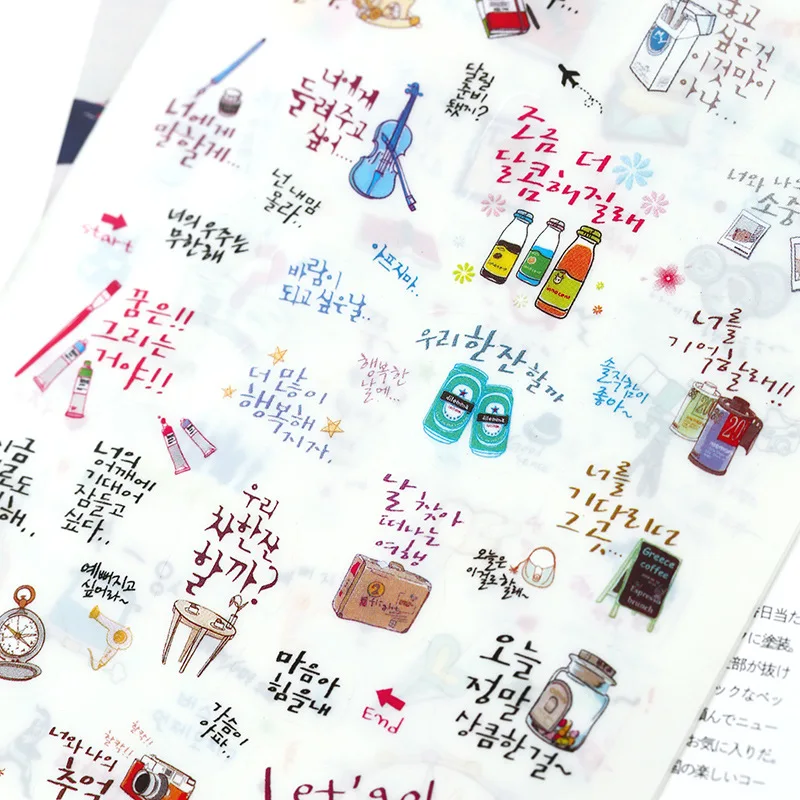 싶은건
이것만이
아냐...
달릴
준비
됐지?
너에게
들려주고
싶어...
너에게
말할게...
조금 더
달콤해질래
너와 나의
소중
넌 내맘
몰라..
start
너의 우주는
무한해
아프지마..
바람이
되고 싶은날..
꿈은!!
그리는
거야!!
너를
기억할래!!
우리 한잔 할까
행복한
날에...
솔직함이
좋아~
더 많이
행복해
지자.
너의
어깨에
기대어
잠들고
싶다..
우리
차한잔
할까?
날 찾아
떠나는
여행
너를
기다리던
그 곳...
오늘은
이걸로 할래~
Greece
coffee
Espresso
brunch
예뻐지고
싶어라~
flight
마음아
힘을내
End
오늘
정말
상큼한걸~
가슴이
아파..
너와 나의
추억
찰칵!!
찰칵!!
Let's go!
毎日当た
に塗装。
部が抜け
ックなペッ
んでニュー
お気に入りだ。
国の楽しいコー